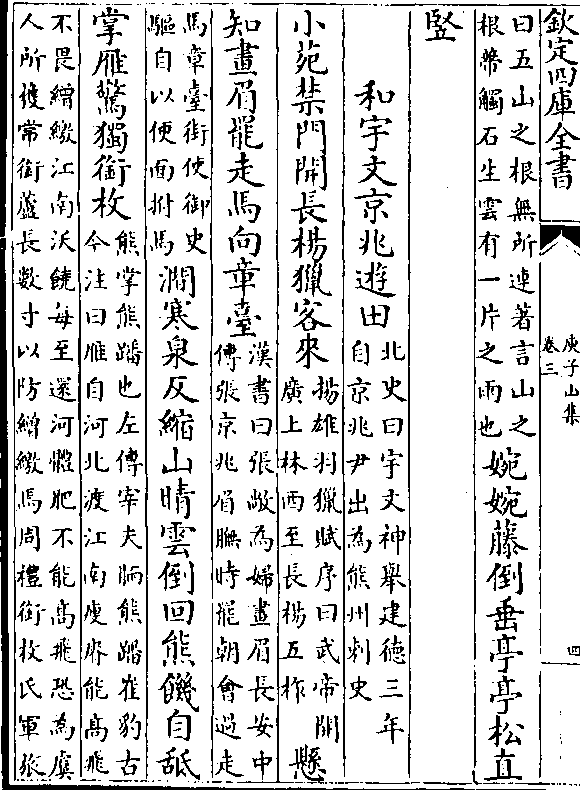 欽定四庫全書
庾子山集
卷三
四
曰五山之根無所連著言山之
根幣觸石生雲有一片之雨也
婉婉藤倒垂亭亭松直
竪
和宇文京兆遊田
北史曰宇文神舉建德三年
自京兆尹出為熊州刺史
小苑禁門開長楊獵客來
揚雄羽獵賦序曰武帝開
廣上林西至長楊五柞
懸
知畫眉罷走馬向章臺
漢書曰張敞為婦畫眉長安中
傳張京兆眉膴時罷朝會過走
馬章臺街使御史
驅自以便面拊馬
澗寒泉反縮山晴雲倒回熊饑自舐
掌雁驚獨銜枚
熊掌熊蹯也左傳宰夫胹熊蹯崔豹古
今注曰雁自河北渡江南瘦瘠能高飛
不畏繒繳江南沃饒每至還河體肥不能高飛恐為虞
人所獲常銜蘆長數寸以防繒繳焉周禮銜枚氏軍旅